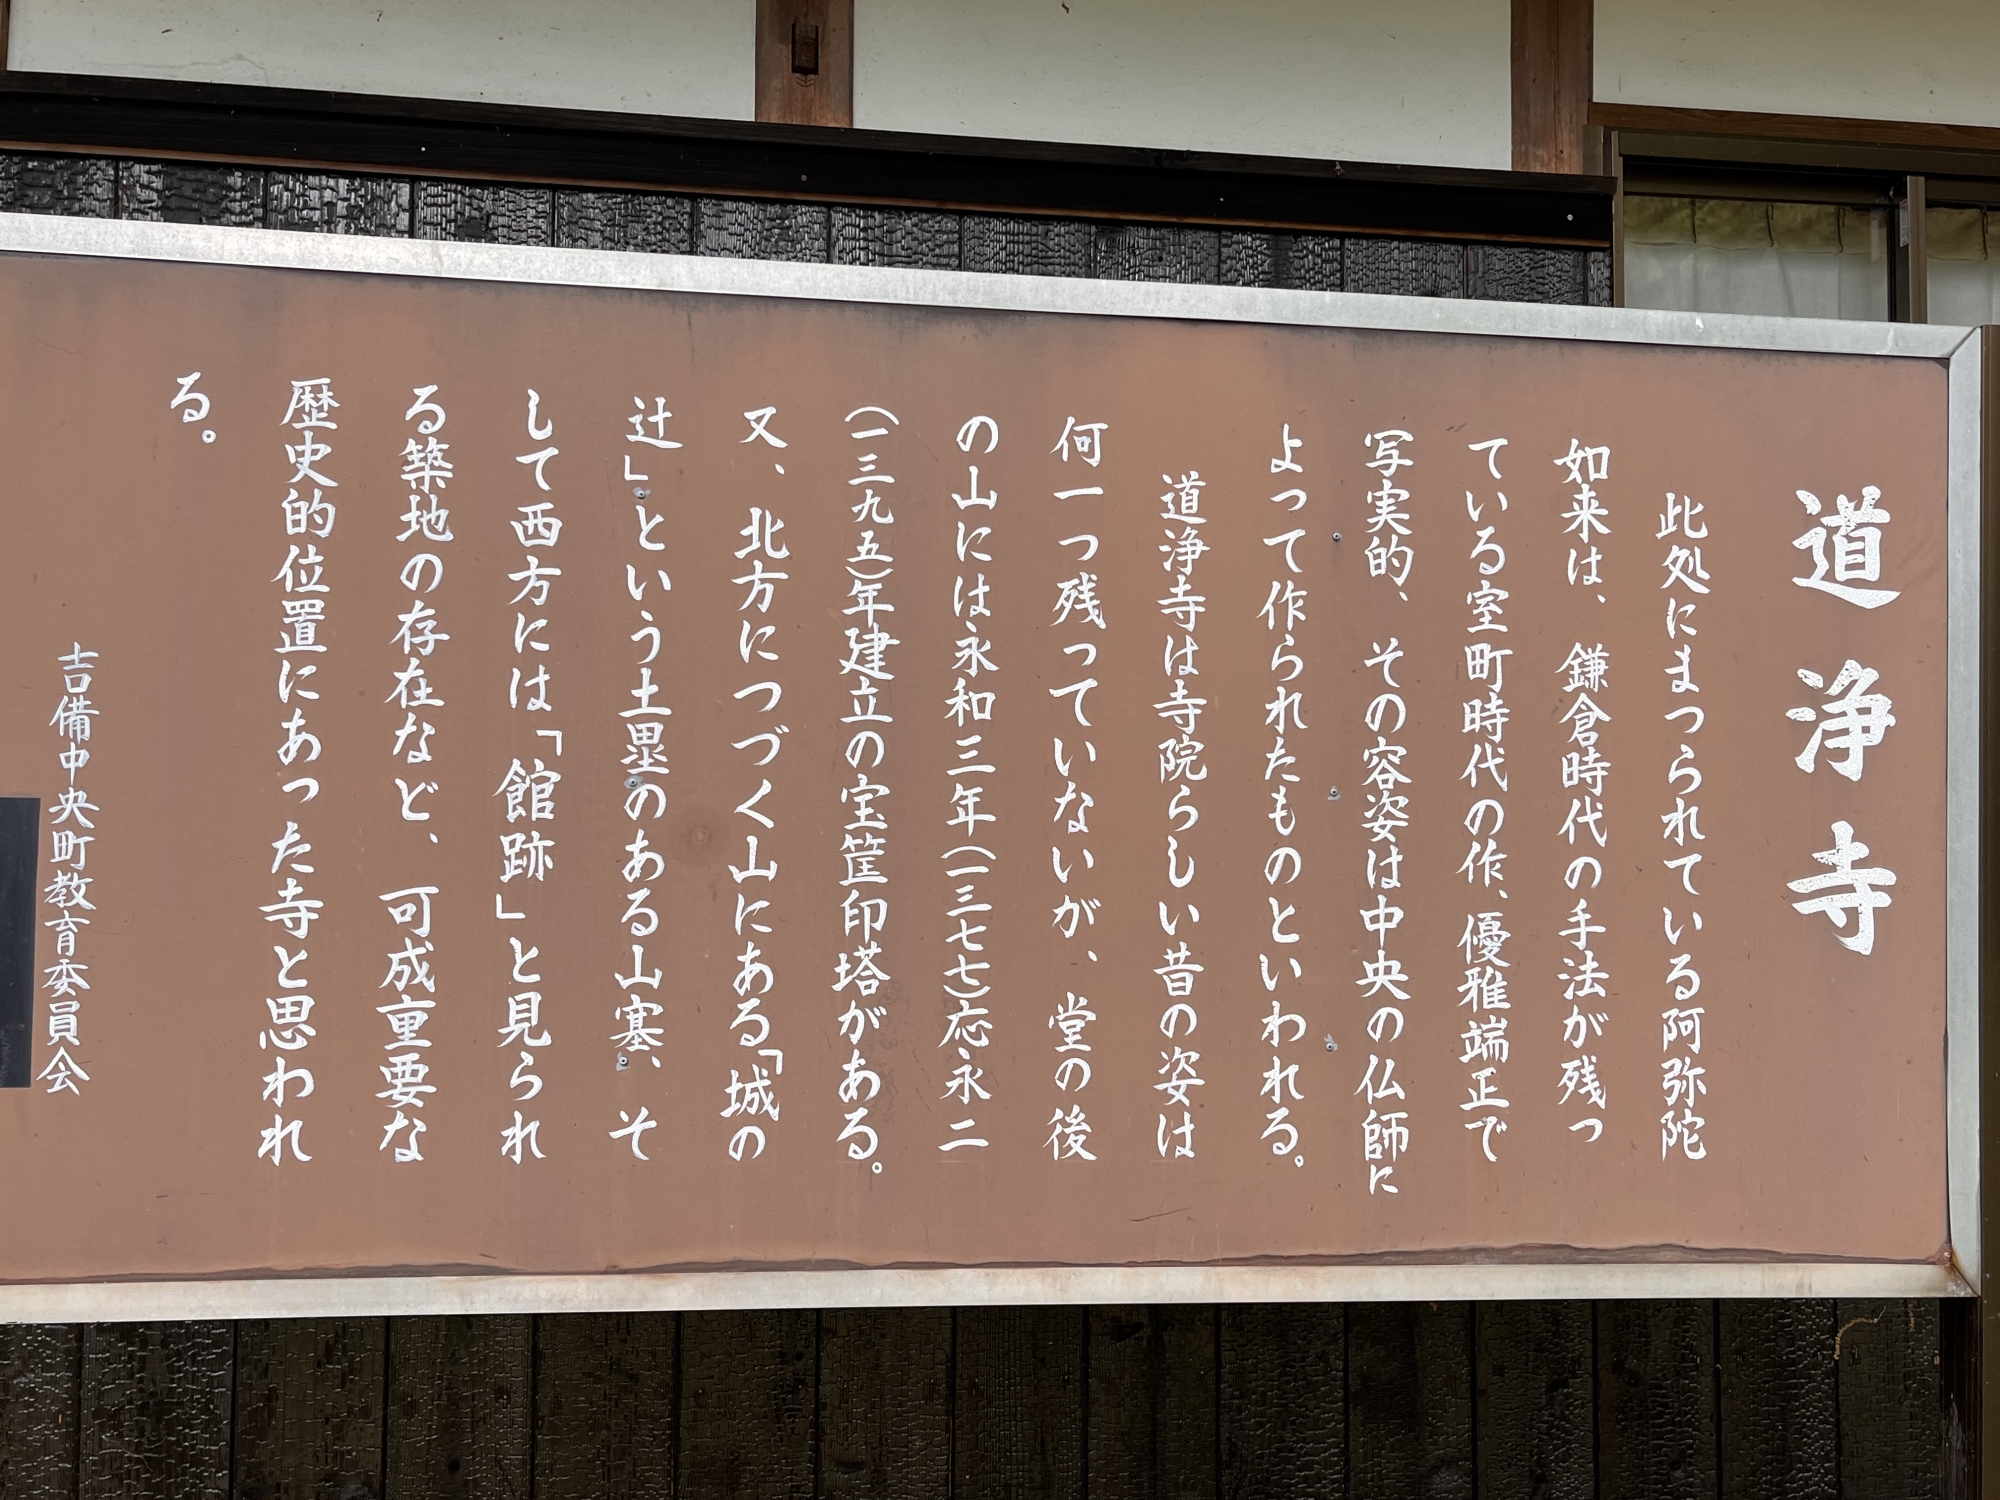 道浄寺
此処にまつられている阿弥陀
如来は、鎌倉時代の手法が残っ
ている室町時代の作、優雅端正で
写実的、その容姿は中央の仏師に
よって作られたものといわれる。
道浄寺は寺院らしい昔の姿は
何一つ残っていないが、堂の後
の山には永和三年(一三七七)応永二
(一三九五)年建立の宝筐印塔がある。
又、北方につづく山にある「城の
辻」という土塁のある山塞、そ
して西方には「館跡」と見られ
る築地の存在など、可成重要な
歴史的位置にあった寺と思われ
る。
吉備中央町教育委員会